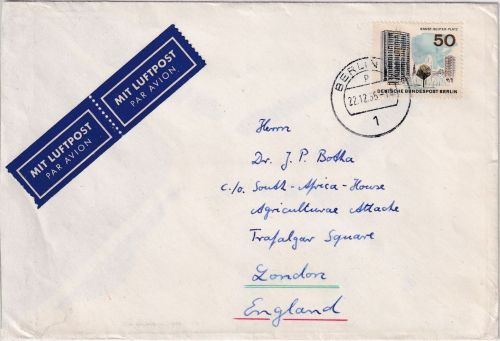 MIT LUFTPOST
PAR AVION
MIT LUFTPOST
PAR AVION
ERNST-REUTER-PLATZ
50
DEUTSCHE BUNDESPOST BERLIN
BERLIN
P
22.12.65
1
Herrn
Dr. J. P. Botha
c/o South-Africa-House
Agriculturae Attache
Trafalgar Square
London
England